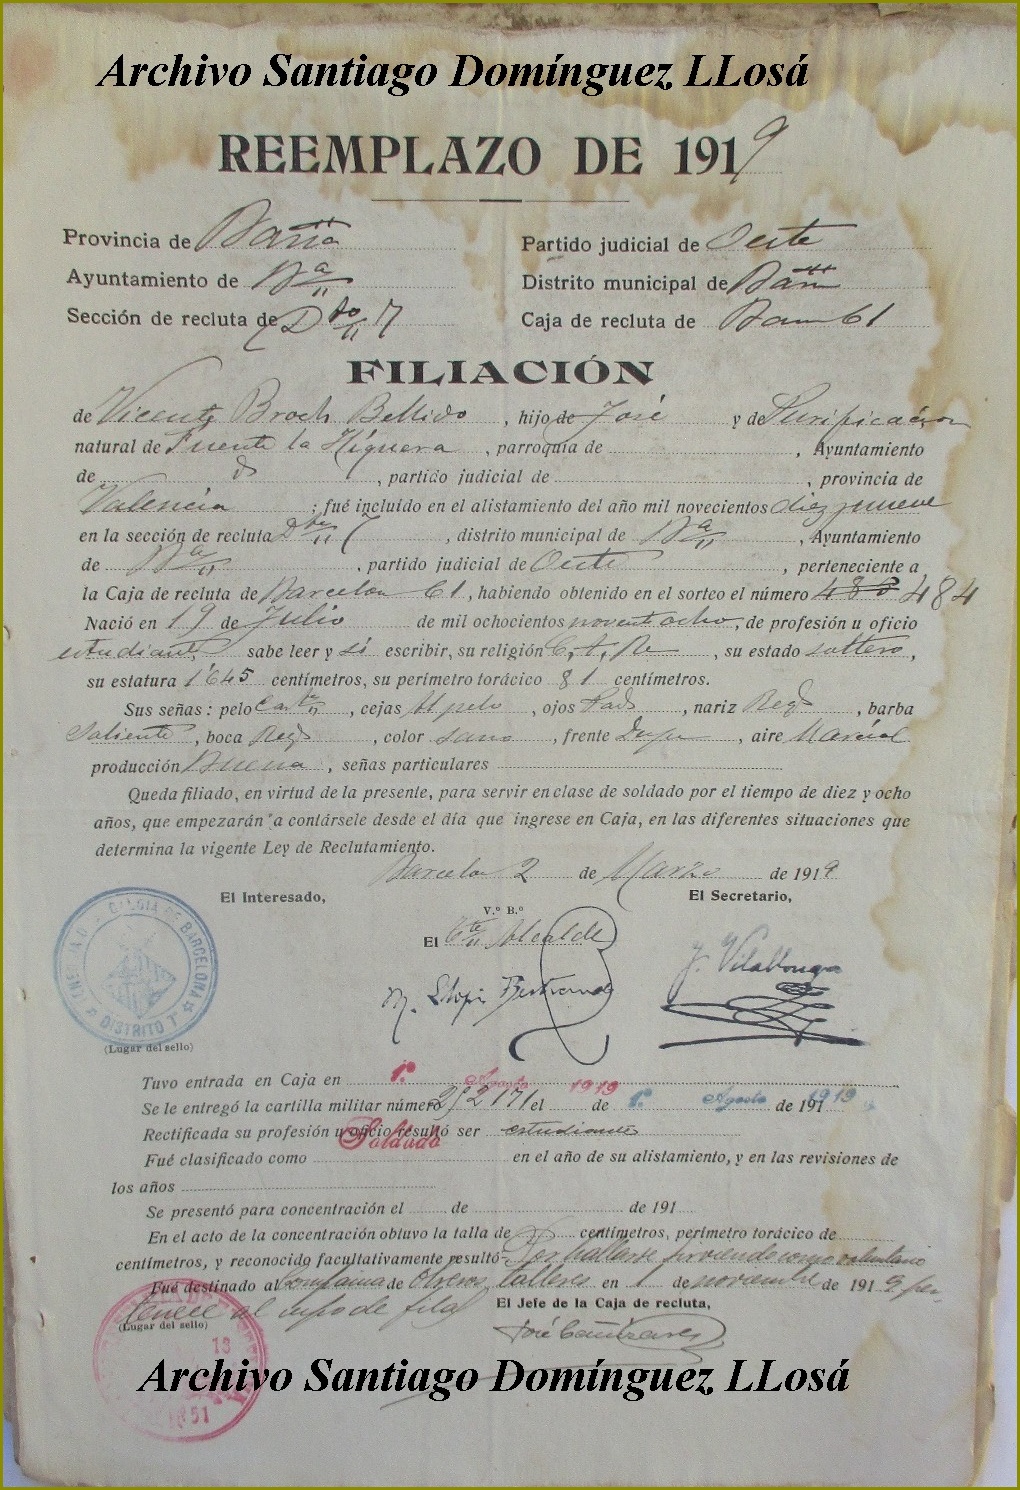 Archivo Santiago Domínguez LLosá
REEMPLAZO DE 1919
Provincia de Barna
Partido judicial de Oeste
Ayuntamiento de Bª
Distrito municipal de Barna
Sección de recluta de Dto 7
Caja de recluta de Barna 61
FILIACIÓN
de Vicente Broch Bellido, hijo de José y de Purificación
natural de Fuente la Higuera, parroquia de , Ayuntamiento
de id, partido judicial de , provincia de
Valencia; fué incluido en el alistamiento del año mil novecientos diez y nueve
en la sección de recluta Dto 7, distrito municipal de Bª, Ayuntamiento
de Bª, partido judicial de Oeste, perteneciente a
la Caja de recluta de Barcelona 61, habiendo obtenido en el sorteo el número 484
Nació en 19 de Julio de mil ochocientos noventa ocho, de profesión u oficio
estudiante, sabe leer y sí escribir, su religión C, A, R, su estado soltero,
su estatura 1'645 centímetros, su perímetro torácico 81 centímetros.
Sus señas: pelo Cast, cejas Al pelo, ojos Pards, nariz Reg, barba
Saliente, boca Reg, color sano, frente , aire Marcial
producción Buena, señas particulares
Queda filiado, en virtud de la presente, para servir en clase de soldado por el tiempo de diez y ocho
años, que empezarán a contársele desde el día que ingrese en Caja, en las diferentes situaciones que
determina la vigente Ley de Reclutamiento.
Barcelona 2 de Marzo de 1919
El Interesado,
V.º B.º
El Secretario,
El Tte Alcalde
M. Bertrand
J. Vilallonga
BARCELONA
DISTRITO 7º
(Lugar del sello)
Tuvo entrada en Caja en 1º Agosto 1919
Se le entregó la cartilla militar número 252171 el de 1º Agosto de 191 1919
Rectificada su profesión u oficio resultó ser estudiante
Fué clasificado como Soldado en el año de su alistamiento, y en las revisiones de
los años
Se presentó para concentración el de de 191
En el acto de la concentración obtuvo la talla de centímetros, perímetro torácico de
centímetros, y reconocido facultativamente resultó Por hallarse sirviendo como voluntario
Fué destinado al Compañia de Obreros talleres en 1 de noviembre de 1919 per-
tenece al cupo de filas
El Jefe de la Caja de recluta,
(Lugar del sello)
José Cañizares
Archivo Santiago Domínguez LLosá